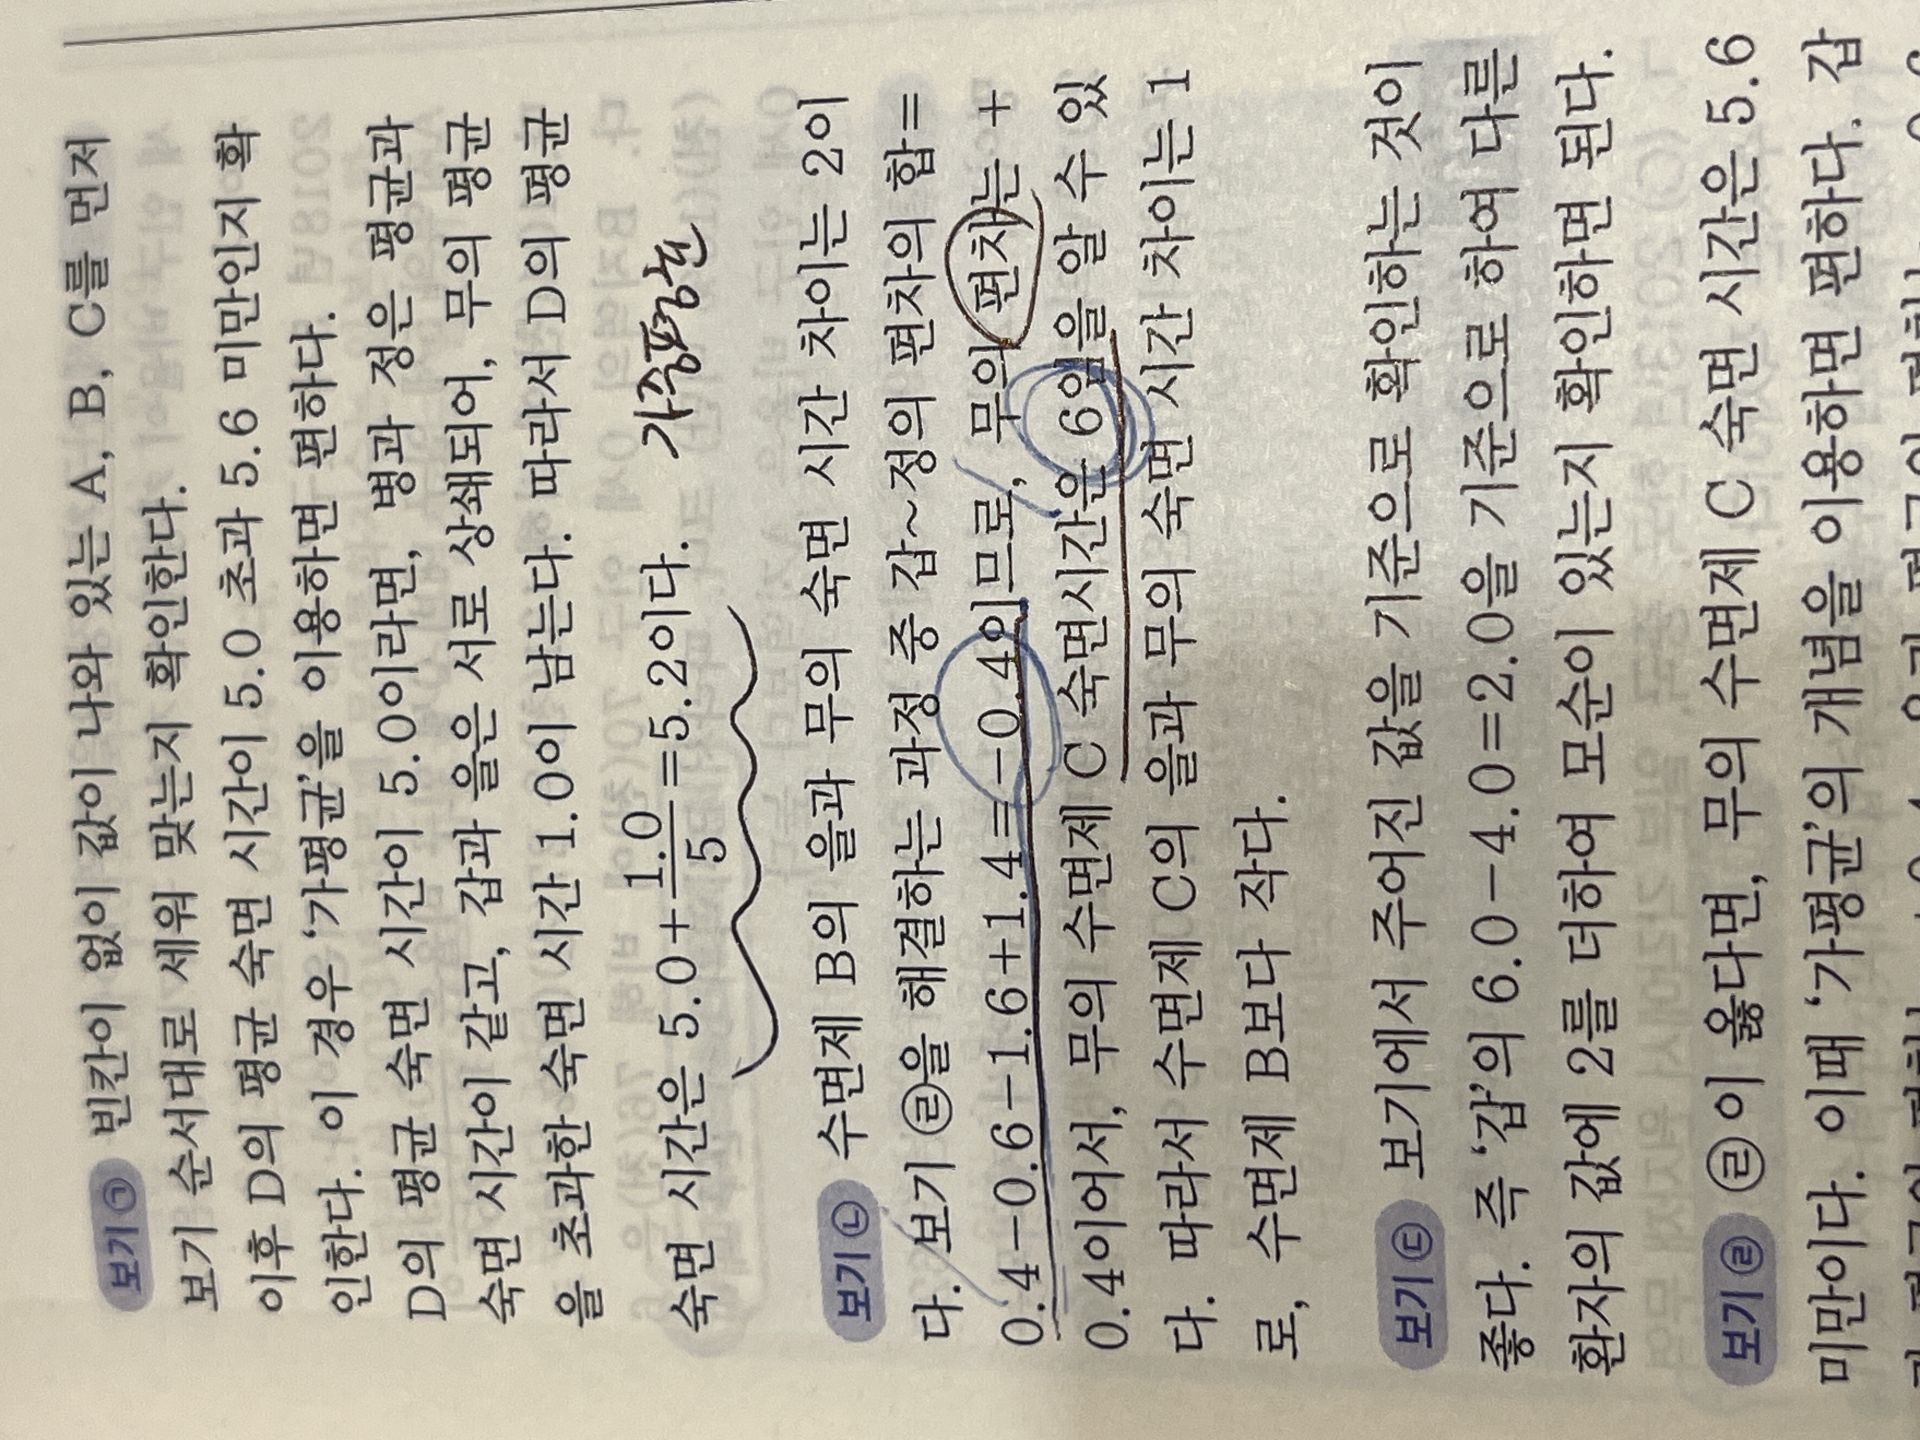 보기㉠ 빈칸이 없이 값이 나와 있는 A, B, C를 먼저
보기 순서대로 세워 맞는지 확인한다.
이후 D의 평균 숙면 시간이 5.0 초과 5.6 미만인지 확
인한다. 이 경우 ‘가평균’을 이용하면 편하다.
D의 평균 숙면 시간이 5.0이라면, 병과 정은 평균과
숙면 시간이 같고, 갑과 을은 서로 상쇄되어, 무의 평균
을 초과한 숙면 시간 1.0이 남는다. 따라서 D의 평균
숙면 시간은 5.0+1.0/5=5.2이다. 가중평균
보기㉡ 수면제 B의 을과 무의 숙면 시간 차이는 2이
다. 보기 ㉣을 해결하는 과정 중 갑~정의 편차의 합=
0.4-0.6-1.6+1.4=-0.4이므로, 무의 편차는 +
0.4이어서, 무의 수면제 C 숙면시간은 6임을 알 수 있
다. 따라서 수면제 C의 을과 무의 숙면 시간 차이는 1
로, 수면제 B보다 작다.
보기㉢ 보기에서 주어진 값을 기준으로 확인하는 것이
좋다. 즉 ‘갑’의 6.0-4.0=2.0을 기준으로 하여 다른
환자의 값에 2를 더하여 모순이 있는지 확인하면 된다.
보기㉣ ㉣이 옳다면, 무의 수면제 C 숙면 시간은 5.6
미만이다. 이때 ‘가평균’의 개념을 이용하면 편하다. 갑